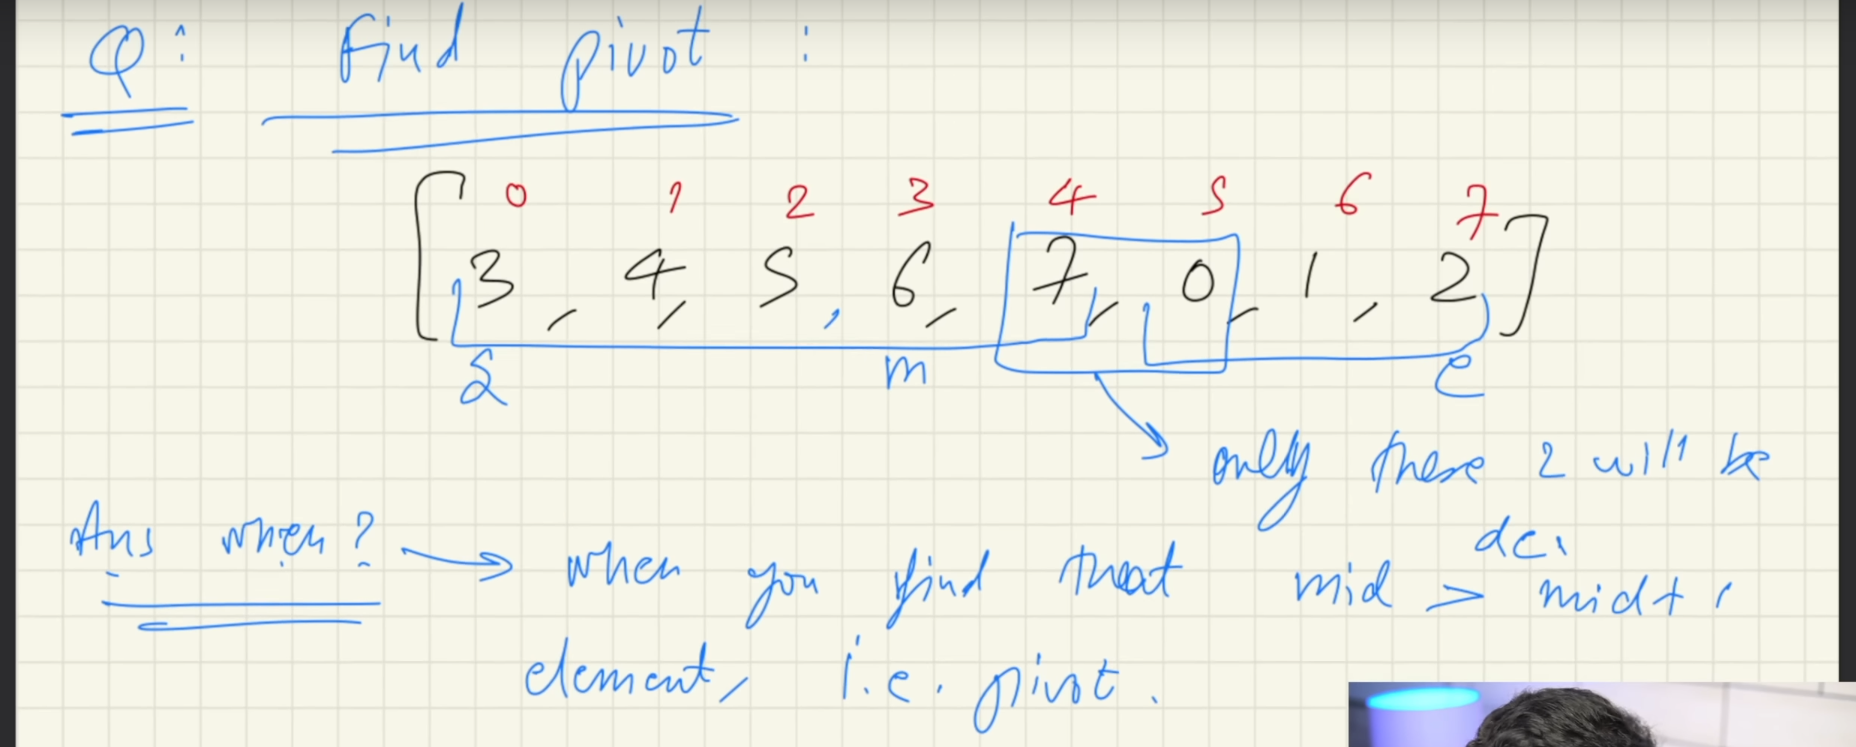 Q: Find pivot :
0 1 2 3 4 5 6 7
[ 3, 4, 5, 6, 7, 0, 1, 2 ]
S m e
only these 2 will be
dc.
Ans when? → when you find that mid > mid+1
element, i.e. pivot.